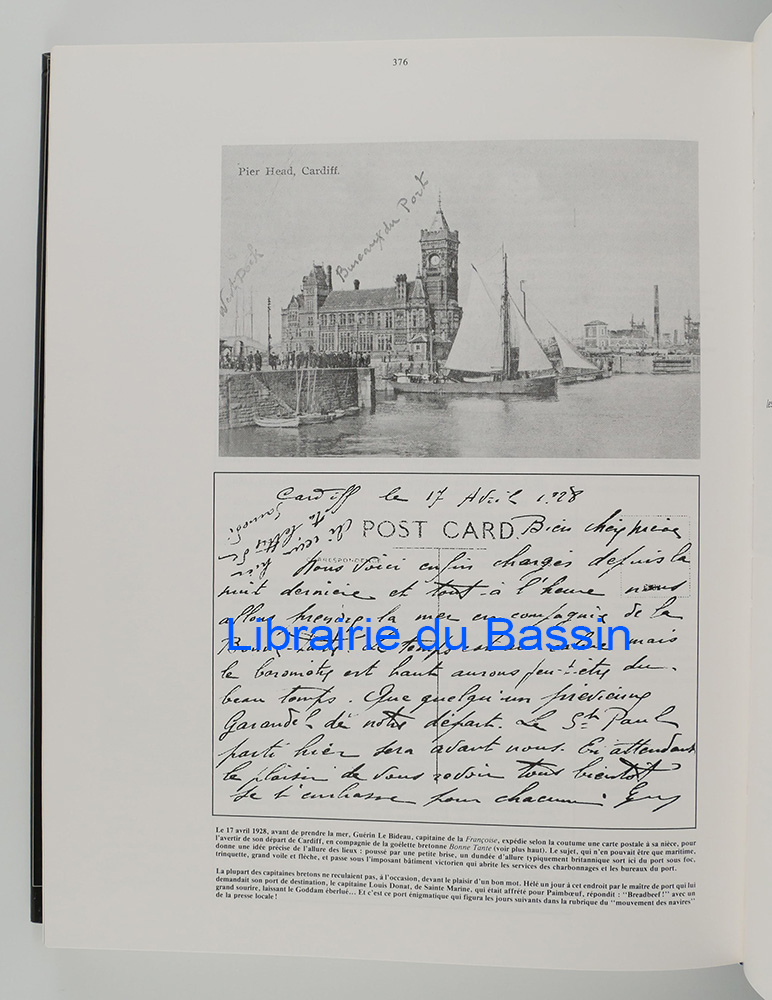 376
Pier Head, Cardiff.
Bureaux du Port
West Dock
Cardiff le 17 Avril 1928
POST CARD.
Bien chère nièce
CORRESPONDENCE
Nous voici enfin chargés depuis la
nuit dernière et tout à l'heure nous
allons prendre la mer en compagnie de la
Bonne Tante. Le temps est mais
le baromètre est haut aurons peut-être du
beau temps. Que quelqu'un prévienne
de notre départ. Le St Paul
parti hier sera avant nous. En attendant
le plaisir de vous revoir tous bientôt
Je t'embrasse pour chacun
Librairie du Bassin
Le 17 avril 1928, avant de prendre la mer, Guérin Le Bideau, capitaine de la Françoise, expédie selon la coutume une carte postale à sa nièce, pour
l'avertir de son départ de Cardiff, en compagnie de la goëlette bretonne Bonne Tante (voir plus haut). Le sujet, qui n'en pouvait être que maritime,
donne une idée précise de l'allure des lieux : poussé par une petite brise, un dundée d'allure typiquement britannique sort ici du port sous foc,
trinquette, grand voile et flèche, et passe sous l'imposant bâtiment victorien qui abrite les services des charbonnages et les bureaux du port.
La plupart des capitaines bretons ne reculaient pas, à l'occasion, devant le plaisir d'un bon mot. Hélé un jour à cet endroit par le maître de port qui lui
demandait son port de destination, le capitaine Louis Donat, de Sainte Marine, qui était affrété pour Paimbœuf, répondit : "Breadbeef !" avec un
grand sourire, laissant le Goddam éberlué... Et c'est ce port énigmatique qui figura les jours suivants dans la rubrique du "mouvement des navires"
de la presse locale !